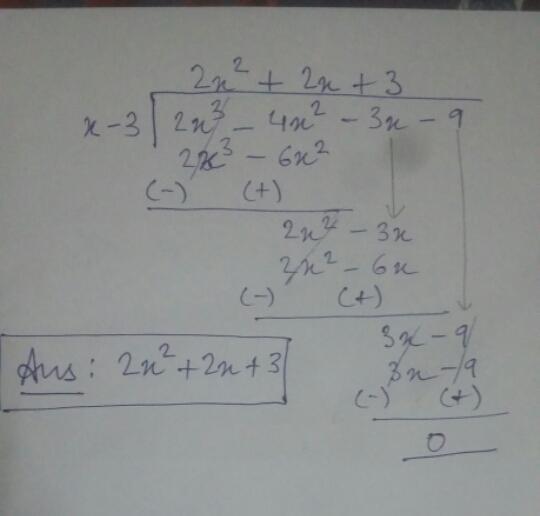 2x² + 2x + 3
x - 3 2x³ - 4x² - 3x - 9
2x³ - 6x²
(-) (+)
2x² - 3x
2x² - 6x
(-) (+)
3x - 9
3x - 9
(-) (+)
0
Ans: 2x² + 2x + 3